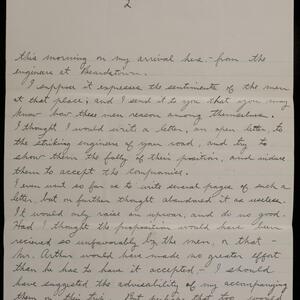 2
this morning on my arrival here - from the
engineers at Beardstown.
I suppose it expresses the sentiments of the men
at that place; and I send it to you that you may
know how these men reason among themselves.
I thought I would write a letter, an open letter to
the striking engineers of your road, and try to
show them the folly of their position, and induce
them to accept the companies.
I even went so far as to write several pages of such a
letter, but on further thought abandoned it as useless.
It would only raise an uproar, and do no good.
Had I thought the proposition would have been
received so unfavorably by the men, or that -
Mr. Arthur would have made no greater effort
than he has to have it accepted, - I should
have suggested the advisability of my accompanying
them on this trip. But perhaps that too would